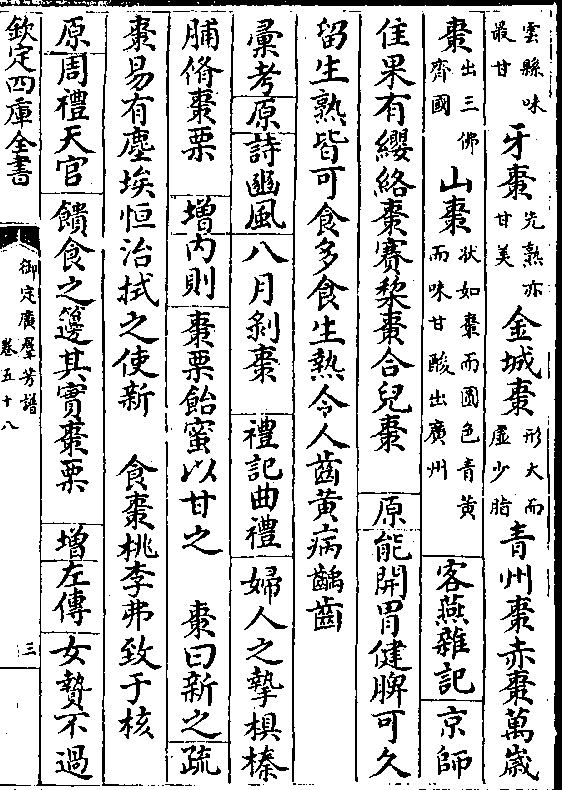 雲縣味最甘 牙棗 先熟亦甘美 金城棗 形大而虛少脂 青州棗赤棗萬歲
棗 出三佛齊國 山棗 狀如棗而圓色青黄而味甘酸出廣州 客燕雜記 京師
佳果有纓絡棗賽棃棗合兒棗 原 能開胃健脾可久
留生熟皆可食多食生熱令人齒黄病齲齒
彚考 原 詩豳風 八月剥棗 禮記曲禮 婦人之摯椇榛
脯脩棗栗 増 内則 棗栗飴蜜以甘之 棗曰新之 疏
棗易有塵埃恒治拭之使新 食棗桃李弗致于核
原 周禮天官 饋食之籩其實棗栗 増 左傳 女贄不過
欽定四庫全書 御定廣羣芳譜 卷五十八 三